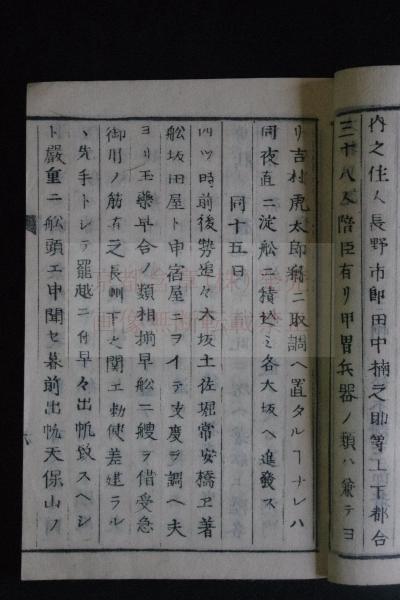 内之住人長野市郎田中楠之助等上下都合
三十八人陪臣有リ甲冑兵器ノ類ハ兼テヨ
リ吉村虎太郎窃ニ取調ヘ置タルヿナレハ
同夜直ニ淀舩ニ積込ミ各大坂ヘ進發ス
同十五日
四ツ時前後勢追々大坂土佐堀常安橋ヱ著
舩坂田屋ト申宿屋ニヲイテ支度ヲ調ヘ夫
ヨリ玉藥早合ノ類相揃早舩二艘ヲ借受急
御用ノ筋有之長州下之関エ勅使差建ラル
ヽ先手トシテ罷越ニ付早々出帆致スヘシ
ト嚴重ニ舩頭エ申聞セ暮前出帆天保山ノ